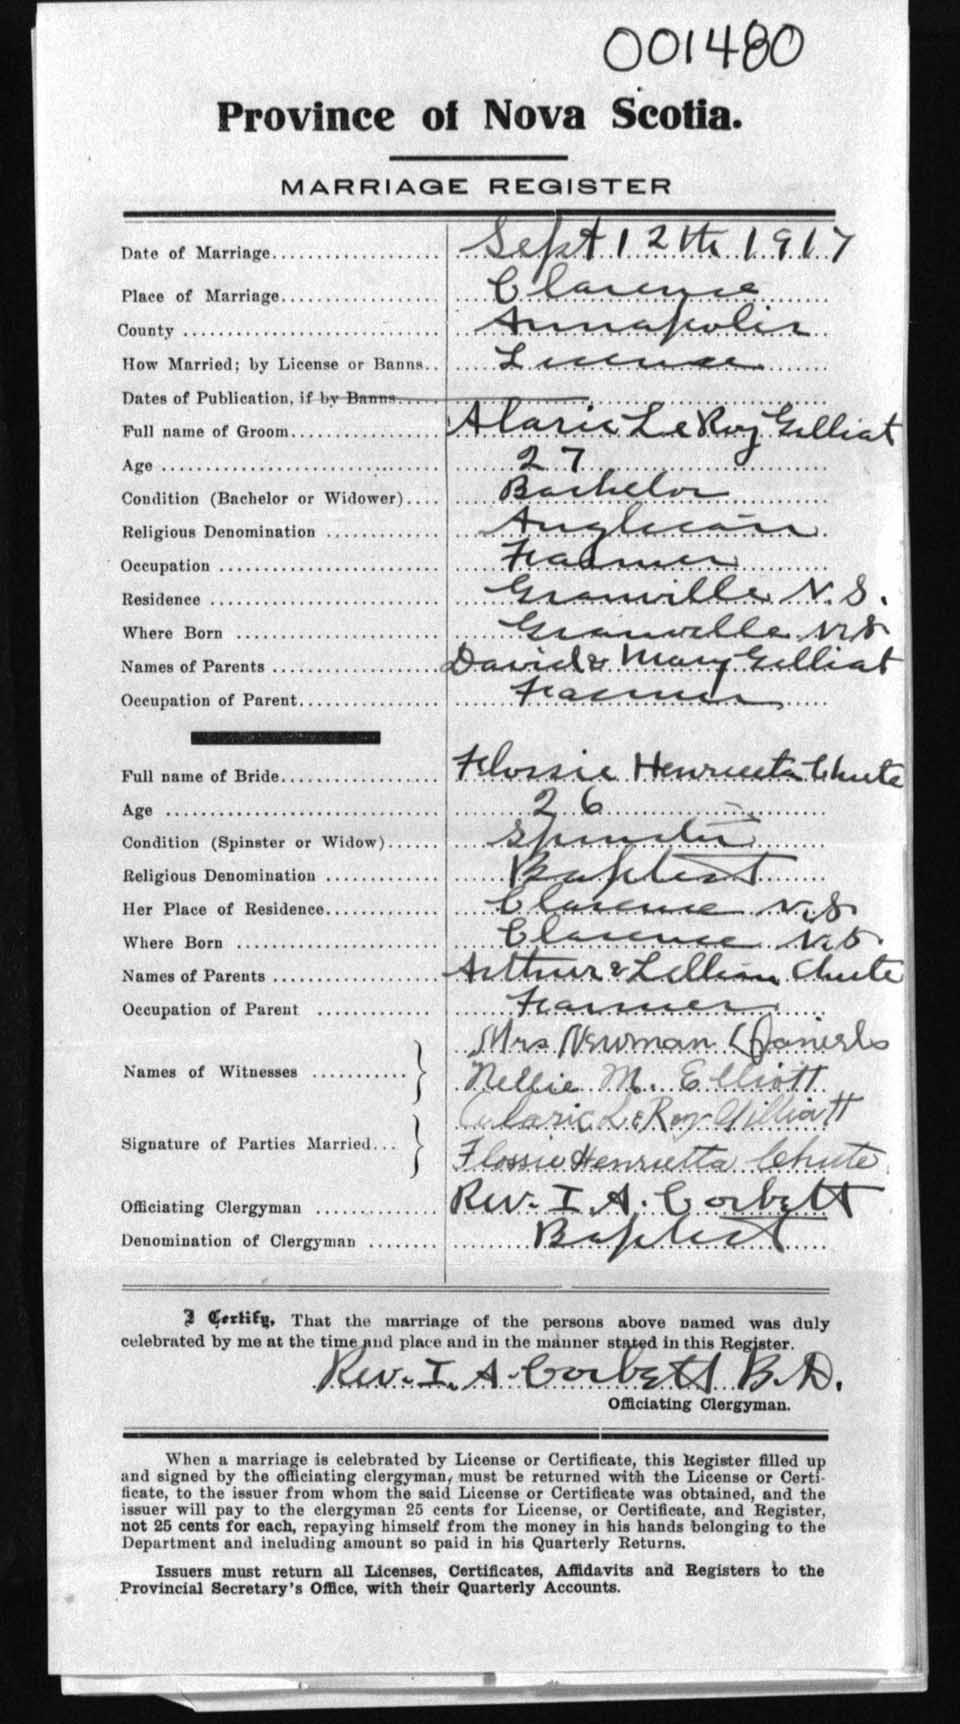 001480
Province of Nova Scotia.
MARRIAGE REGISTER
Date of Marriage.................... Sept 12th 1917
Place of Marriage................... Clarence
County ............................. Annapolis
How Married; by License or Banns.. License
Dates of Publication, if by Banns.....
Full name of Groom.................. Alaric LeRoy Gilliat
Age ................................ 27
Condition (Bachelor or Widower).... Bachelor
Religious Denomination ............. Anglican
Occupation ......................... Farmer
Residence .......................... Granville N.S.
Where Born ......................... Granville N.S
Names of Parents ................... David & Mary Gilliat
Occupation of Parent................ Farmer
Full name of Bride.................. Flossie Henrietta Chute
Age ................................ 26
Condition (Spinster or Widow)...... Spinster
Religious Denomination ............. Baptist
Her Place of Residence.............. Clarence N.S
Where Born ......................... Clarence N.S.
Names of Parents ................... Arthur & Lillian Chute
Occupation of Parent ............... Farmer
Mrs Newman Daniels
Names of Witnesses ........... } Nellie M. Elliott
Alaric LeRoy Gilliatt
Signature of Parties Married... } Flossie Henrietta Chute
Officiating Clergyman .............. Rev. I. A. Corbett
Denomination of Clergyman ........ Baptist
I Certify, That the marriage of the persons above named was duly
celebrated by me at the time and place and in the manner stated in this Register.
Rev. I. A. Corbett B.D.
Officiating Clergyman.
When a marriage is celebrated by License or Certificate, this Register filled up
and signed by the officiating clergyman, must be returned with the License or Certi-
ficate, to the issuer from whom the said License or Certificate was obtained, and the
issuer will pay to the clergyman 25 cents for License, or Certificate, and Register,
not 25 cents for each, repaying himself from the money in his hands belonging to the
Department and including amount so paid in his Quarterly Returns.
Issuers must return all Licenses, Certificates, Affidavits and Registers to the
Provincial Secretary's Office, with their Quarterly Accounts.